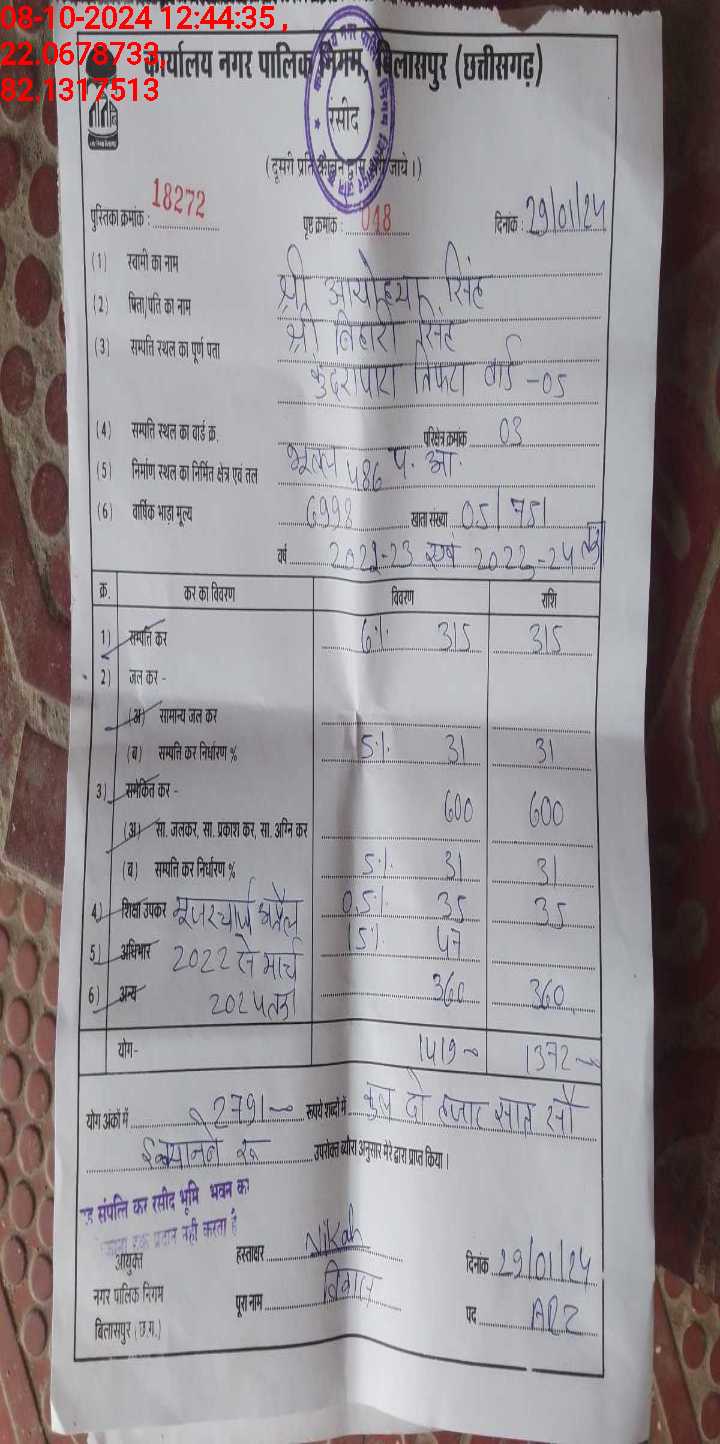 08-10-2024 12:44:35,
22.0678733,
82.1317513
कार्यालय नगर पालिक निगम, बिलासपुर (छत्तीसगढ़)
रसीद
(दूसरी प्रति कार्बन द्वारा जाये।)
पुस्तिका क्रमांक : 18272 पृष्ठ क्रमांक : 048 दिनांक : 29/01/24
(1) स्वामी का नाम श्री अयोध्या सिंह
(2) पिता/पति का नाम श्री बिहारी सिंह
(3) सम्पत्ति स्थल का पूर्ण पता कुंदरापारा तिफरा वार्ड -05
(4) सम्पत्ति स्थल का वार्ड क्र. परिक्षेत्र क्रमांक 03
(5) निर्माण स्थल का निर्मित क्षेत्र एवं तल भूतल 486 प. आ.
(6) वार्षिक भाड़ा मूल्य 6998 खाता संख्या 05/751
वर्ष 2022-23 एवं 2022-24 तक
क्र. कर का विवरण विवरण राशि
1) सम्पत्ति कर 6% 315 315
2) जल कर -
(अ) सामान्य जल कर
(ब) सम्पत्ति कर निर्धारण % 5% 31 31
3) समेकित कर - 600 600
(अ) सा. जलकर, सा. प्रकाश कर, सा. अग्नि कर
(ब) सम्पत्ति कर निर्धारण % 5% 31 31
4) शिक्षा उपकर यूजरचार्ज अप्रैल 0.5% 35 35
5) अधिभार 2022 से मार्च 15% 47
6) अन्य 2024 तक 360 360
योग- 1419 1372
योग अंकों में 2791 रूपये शब्दों में कुल दो हजार सात सौ
इक्यानवे रू उपरोक्त ब्यौरा अनुसार मेरे द्वारा प्राप्त किया।
संपत्ति कर रसीद भूमि भवन का
हक प्रदान नही करता है
आयुक्त हस्ताक्षर Nikah दिनांक 29/01/24
नगर पालिक निगम पूरा नाम पद ARI
बिलासपुर (छ.ग.)